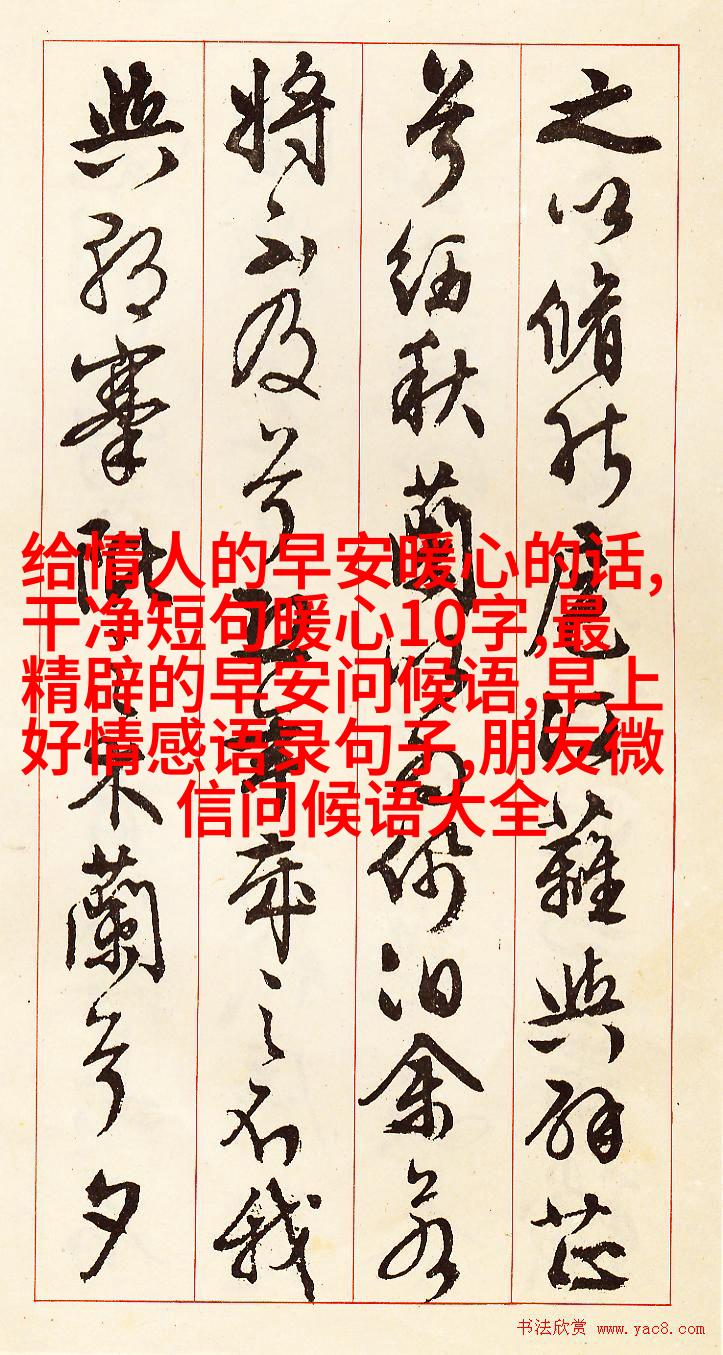 之以脩能扈江蘺與辟芷
兮紉秋蘭以為佩汩余若
將不及兮恐年歲之不我
與朝搴阰之木蘭兮夕
给情人的早安暖心的话,
干净短句暖心10字,最
精辟的早安问候语,早上
好情感语录句子,朋友微
信问候语大全
书法欣赏 www.yac8.com